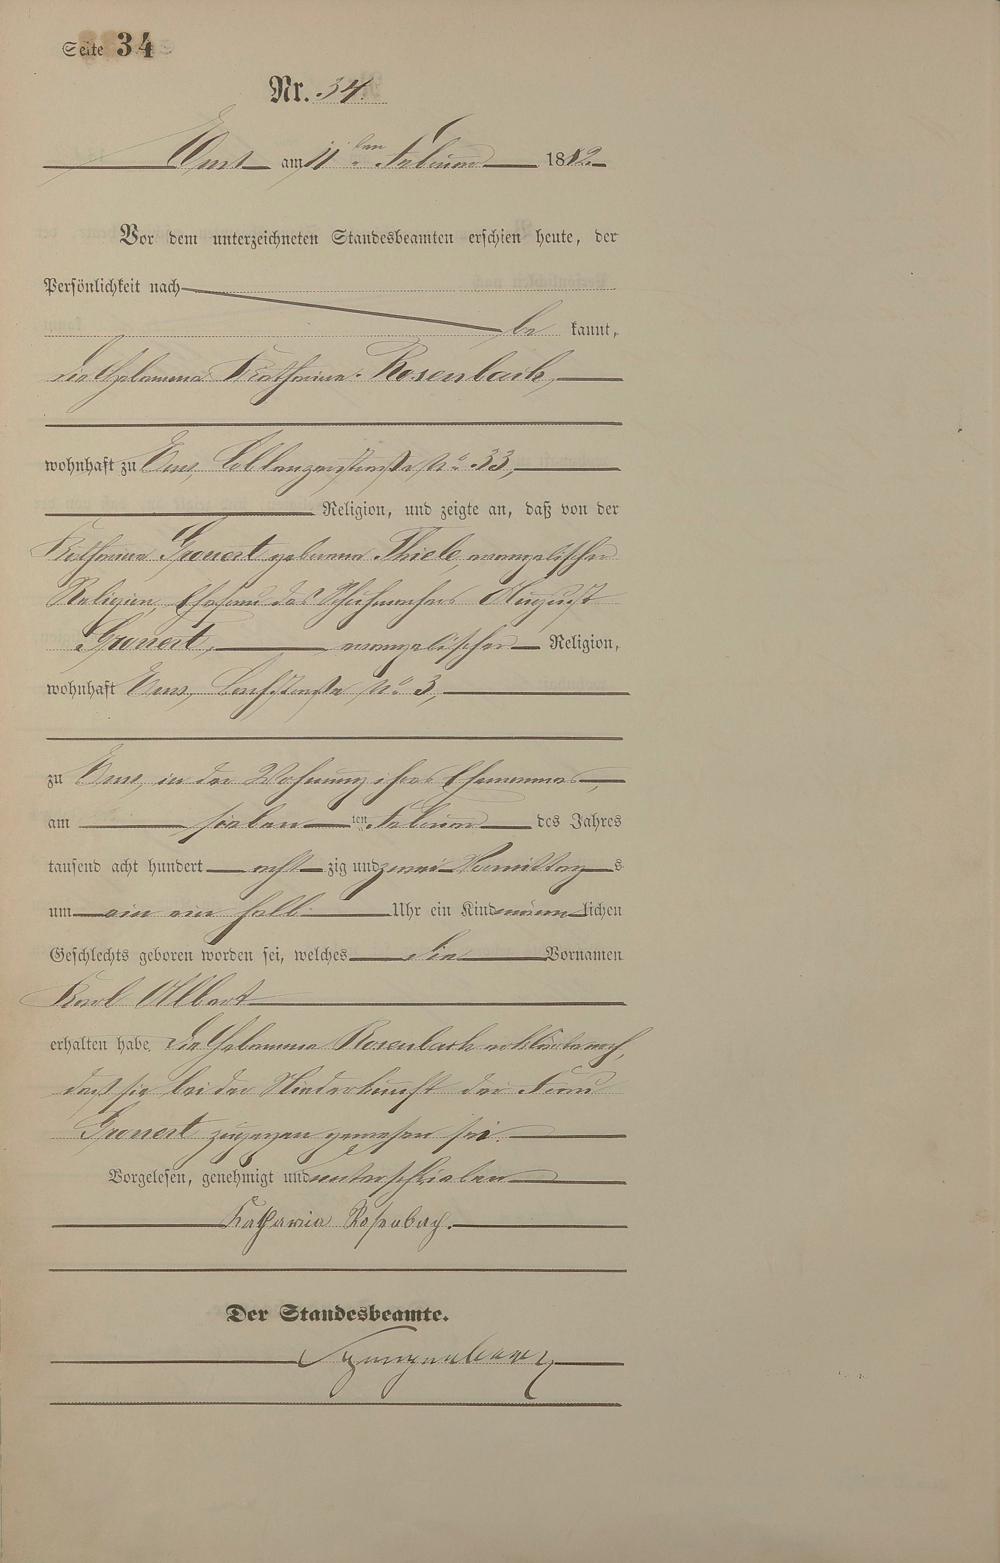 Seite 34
Nr. 34.
Ems am 11ten Februar 1882.
Vor dem unterzeichneten Standesbeamten erschien heute, der
Persönlichkeit nach
be kannt,
die Hebamme Katharina Rosenbach,
wohnhaft zu Ems, Coblenzerstraße No. 33,
Religion, und zeigte an, daß von der
Katharina Gronert geborene Thiele, evangelischer
Religion, Ehefrau des Schuhmachers August
Gronert, evangelischer Religion,
wohnhaft Ems, No. 3,
zu Ems, in der Wohnung ihres Ehemannes,
am siebenten Februar des Jahres
tausend acht hundert acht zig und zwei Vormittags
um ein ein halb Uhr ein Kind männlichen
Geschlechts geboren worden sei, welches die Vornamen
Karl Albert
erhalten habe. Die Hebamme Rosenbach erklärte noch,
daß sie bei der Niederkunft der Frau
Gronert zugegen gewesen sei.
Vorgelesen, genehmigt und unterschrieben
Katharina Rosenbach.
Der Standesbeamte.